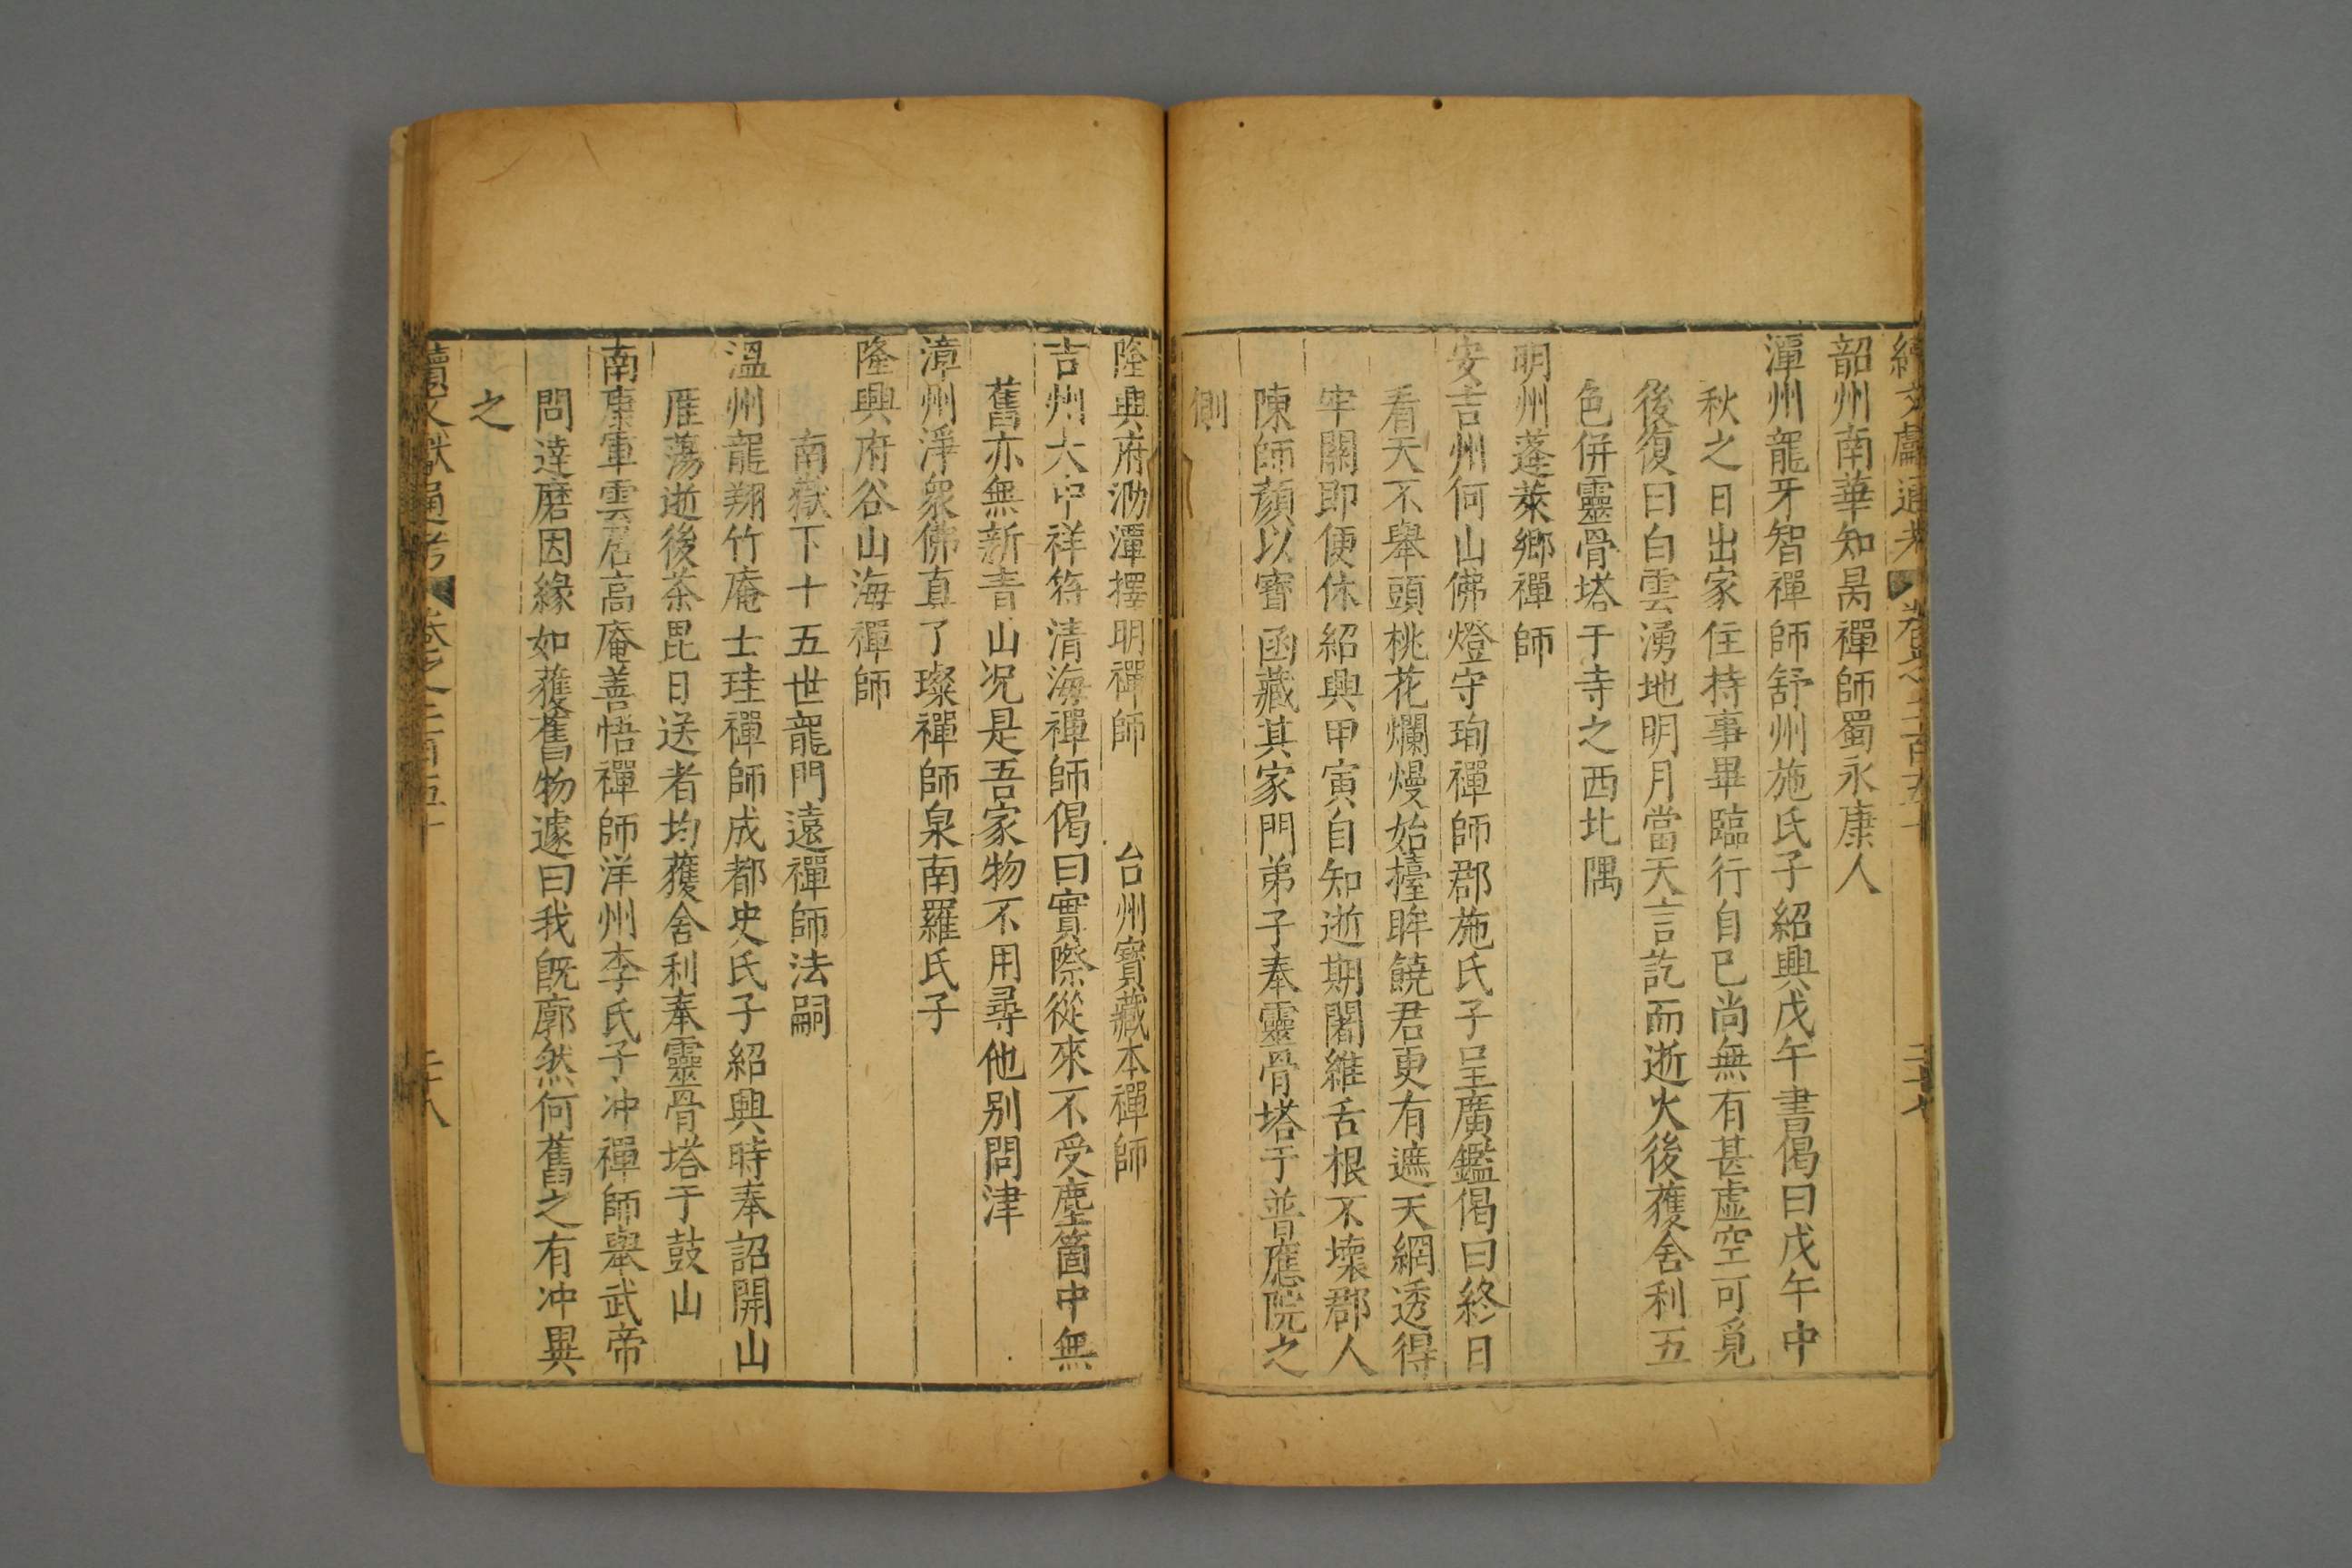 續文獻通考 卷之二百五十 二十七
韶州南華知昺禪師蜀永康人
潭州龍牙智禪師舒州施氏子紹興戊午書偈曰戊午中
秋之日出家住持事畢臨行自已尚無有甚虛空可覓
後復曰白雲湧地明月當天言訖而逝火後獲舍利五
色併靈骨塔于寺之西北隅
明州蓬萊鄉禪師
安吉州何山佛燈守珣禪師郡施氏子呈廣鑑偈曰終日
看天不舉頭桃花爛熳始擡眸饒君更有遮天網透得
牢關即便休紹興甲寅自知逝期闍維舌根不壞郡人
陳師顏以寶函藏其家門弟子奉靈骨塔于普應院之
側
隆興府泐潭擇明禪師 台州寶藏本禪師
吉州大中祥符清海禪師偈曰實際從來不受塵箇中無
舊亦無新青山况是吾家物不用尋他別問津
漳州淨眾佛真了璨禪師泉南羅氏子
隆興府谷山海禪師
南嶽下十五世龍門遠禪師法嗣
溫州龍翔竹庵士珪禪師成都史氏子紹興時奉詔開山
雁蕩逝後茶毘日送者均獲舍利奉靈骨塔于鼓山
南康軍雲居高庵善悟禪師洋州李氏子冲禪師舉武帝
問達磨因緣如獲舊物遽曰我既廓然何舊之有冲異
之
續文獻通考 卷之二百五十 二十八